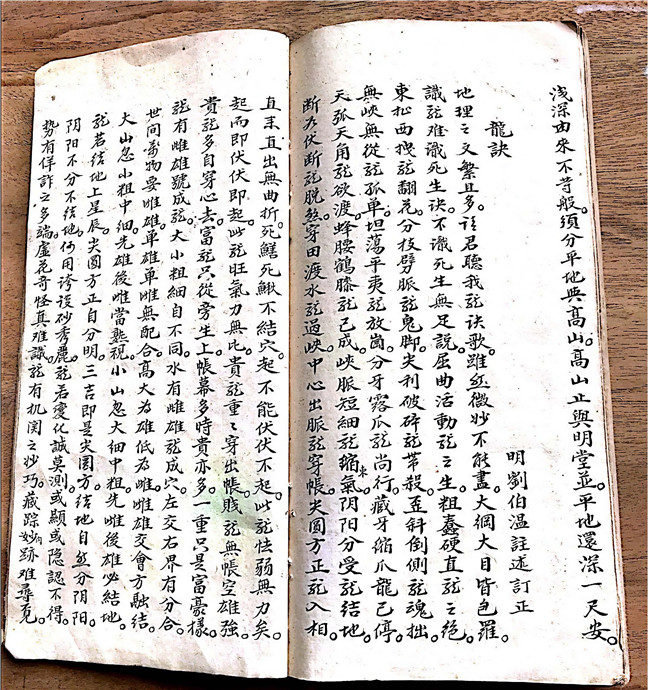 浅深由來不苛般。須分平地與高山。高山止與明堂並。平地還深一尺安。
龍訣
明劉伯溫註述訂正
地理之文繁且多。請君聽我龙訣歌。雖然微妙不能盡。大綱大目皆包羅。
識龙难識死生诀。不識死生無足說。屈曲活動龙之生。粗蠢硬直龙之绝。
東松西挽龙翻花。分枝劈脈龙鬼脚。尖利破碎龙带殺。歪斜倒側龙魂拙。
無峽無從龙孤单。坦蕩平夷龙放箇。分牙露爪龙尚行。藏牙缩爪龍已停。
天孤天角龙欲渡。蜂腰鶴膝龙已成。峽脈短細龙缩氣。阴阳分受龙结地。
断为伏断龙脱煞。穿田渡水龙過峽。中心出脈龙穿帳。尖圓方正龙入相。
直來直出無曲折。死鳝死鰍不結穴。起不能伏伏不起。此龙怯弱無力矣。
起而即伏伏即起。此龙旺氣力無比。貴龙重重穿出帳。贱龙無帳空雄強。
貴龙多自穿心去。富龙只從旁生上。帳幕多時貴亦多。一重只是富豪樣。
龙有雌雄號成龙。大小粗細自不同。水有雌雄龙成穴。左交右界有分合。
世间萬物要雌雄。单雄单雌無配合。高大为雄低为雌。雌雄交會方融結。
大山忽小粗中細。先雄後雌當熟視。小山忽大细中粗。先雌後雄必結地。
龙若结地上星辰。尖圓方正自分明。三吉即是尖圆方。结地自然分阴阳。
阴阳不分不结地。何用誇談砂秀麗。龙若变化誠莫测。或顯或隐認不得。
勢有佯詐之多端。虚花奇怪真难識。龙有机関之妙巧。藏踪妙跡难尋覓